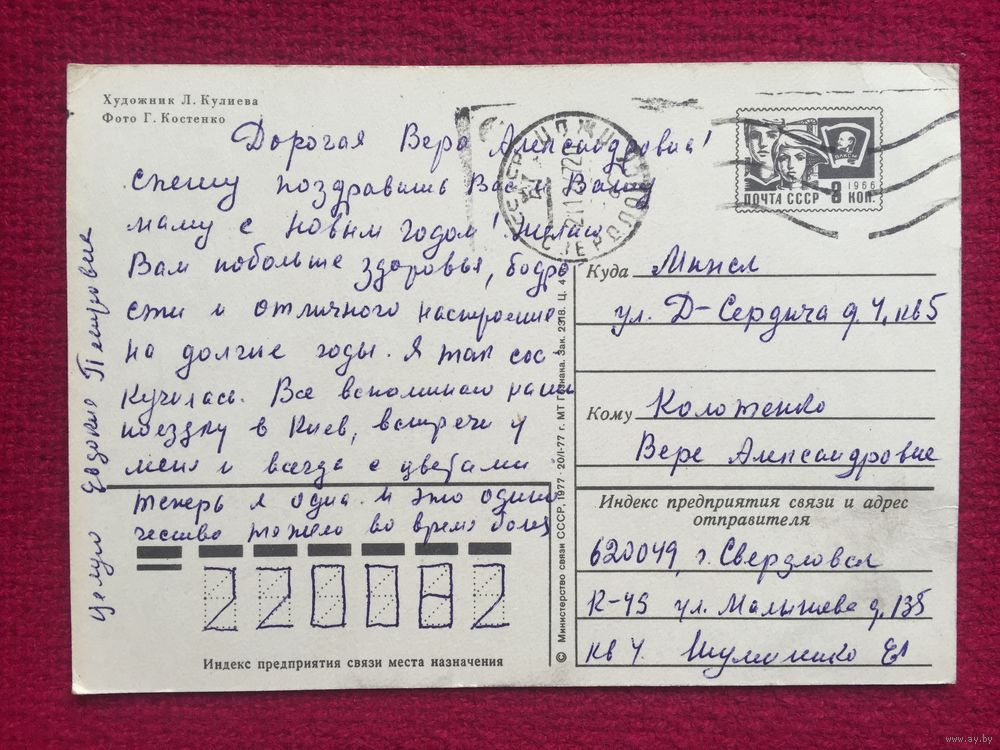 Художник Л. Кулиева
Фото Г. Костенко
Дорогая Вера Александровна!
спешу поздравить Вас и Вашу
маму с новым годом! Желаю
Вам побольше здоровья, бодро
сти и отличного настроение
на долгие годы. Я так сос-
кучилась. Все вспоминаю наши
поездку в Киев, встречи у
меня и всегда с цветами
теперь я одна. И это одино
чество тяжело во время болез
целую
ПОЧТА СССР 1966 3 КОП.
ВЛКСМ
Куда Минск
ул. Д-Сердича д. 4, кв 5
Кому Колотенко
Вере Александровне
Индекс предприятия связи и адрес
отправителя
620049, г. Свердловск
К-49 ул. Малышева д. 135
кв 4.
220082
Индекс предприятия связи места назначения
© Министерство связи СССР, 1977 · 20/I-77 г. МТ Гознака. Зак. 2318. Ц. 4
www.ay.by